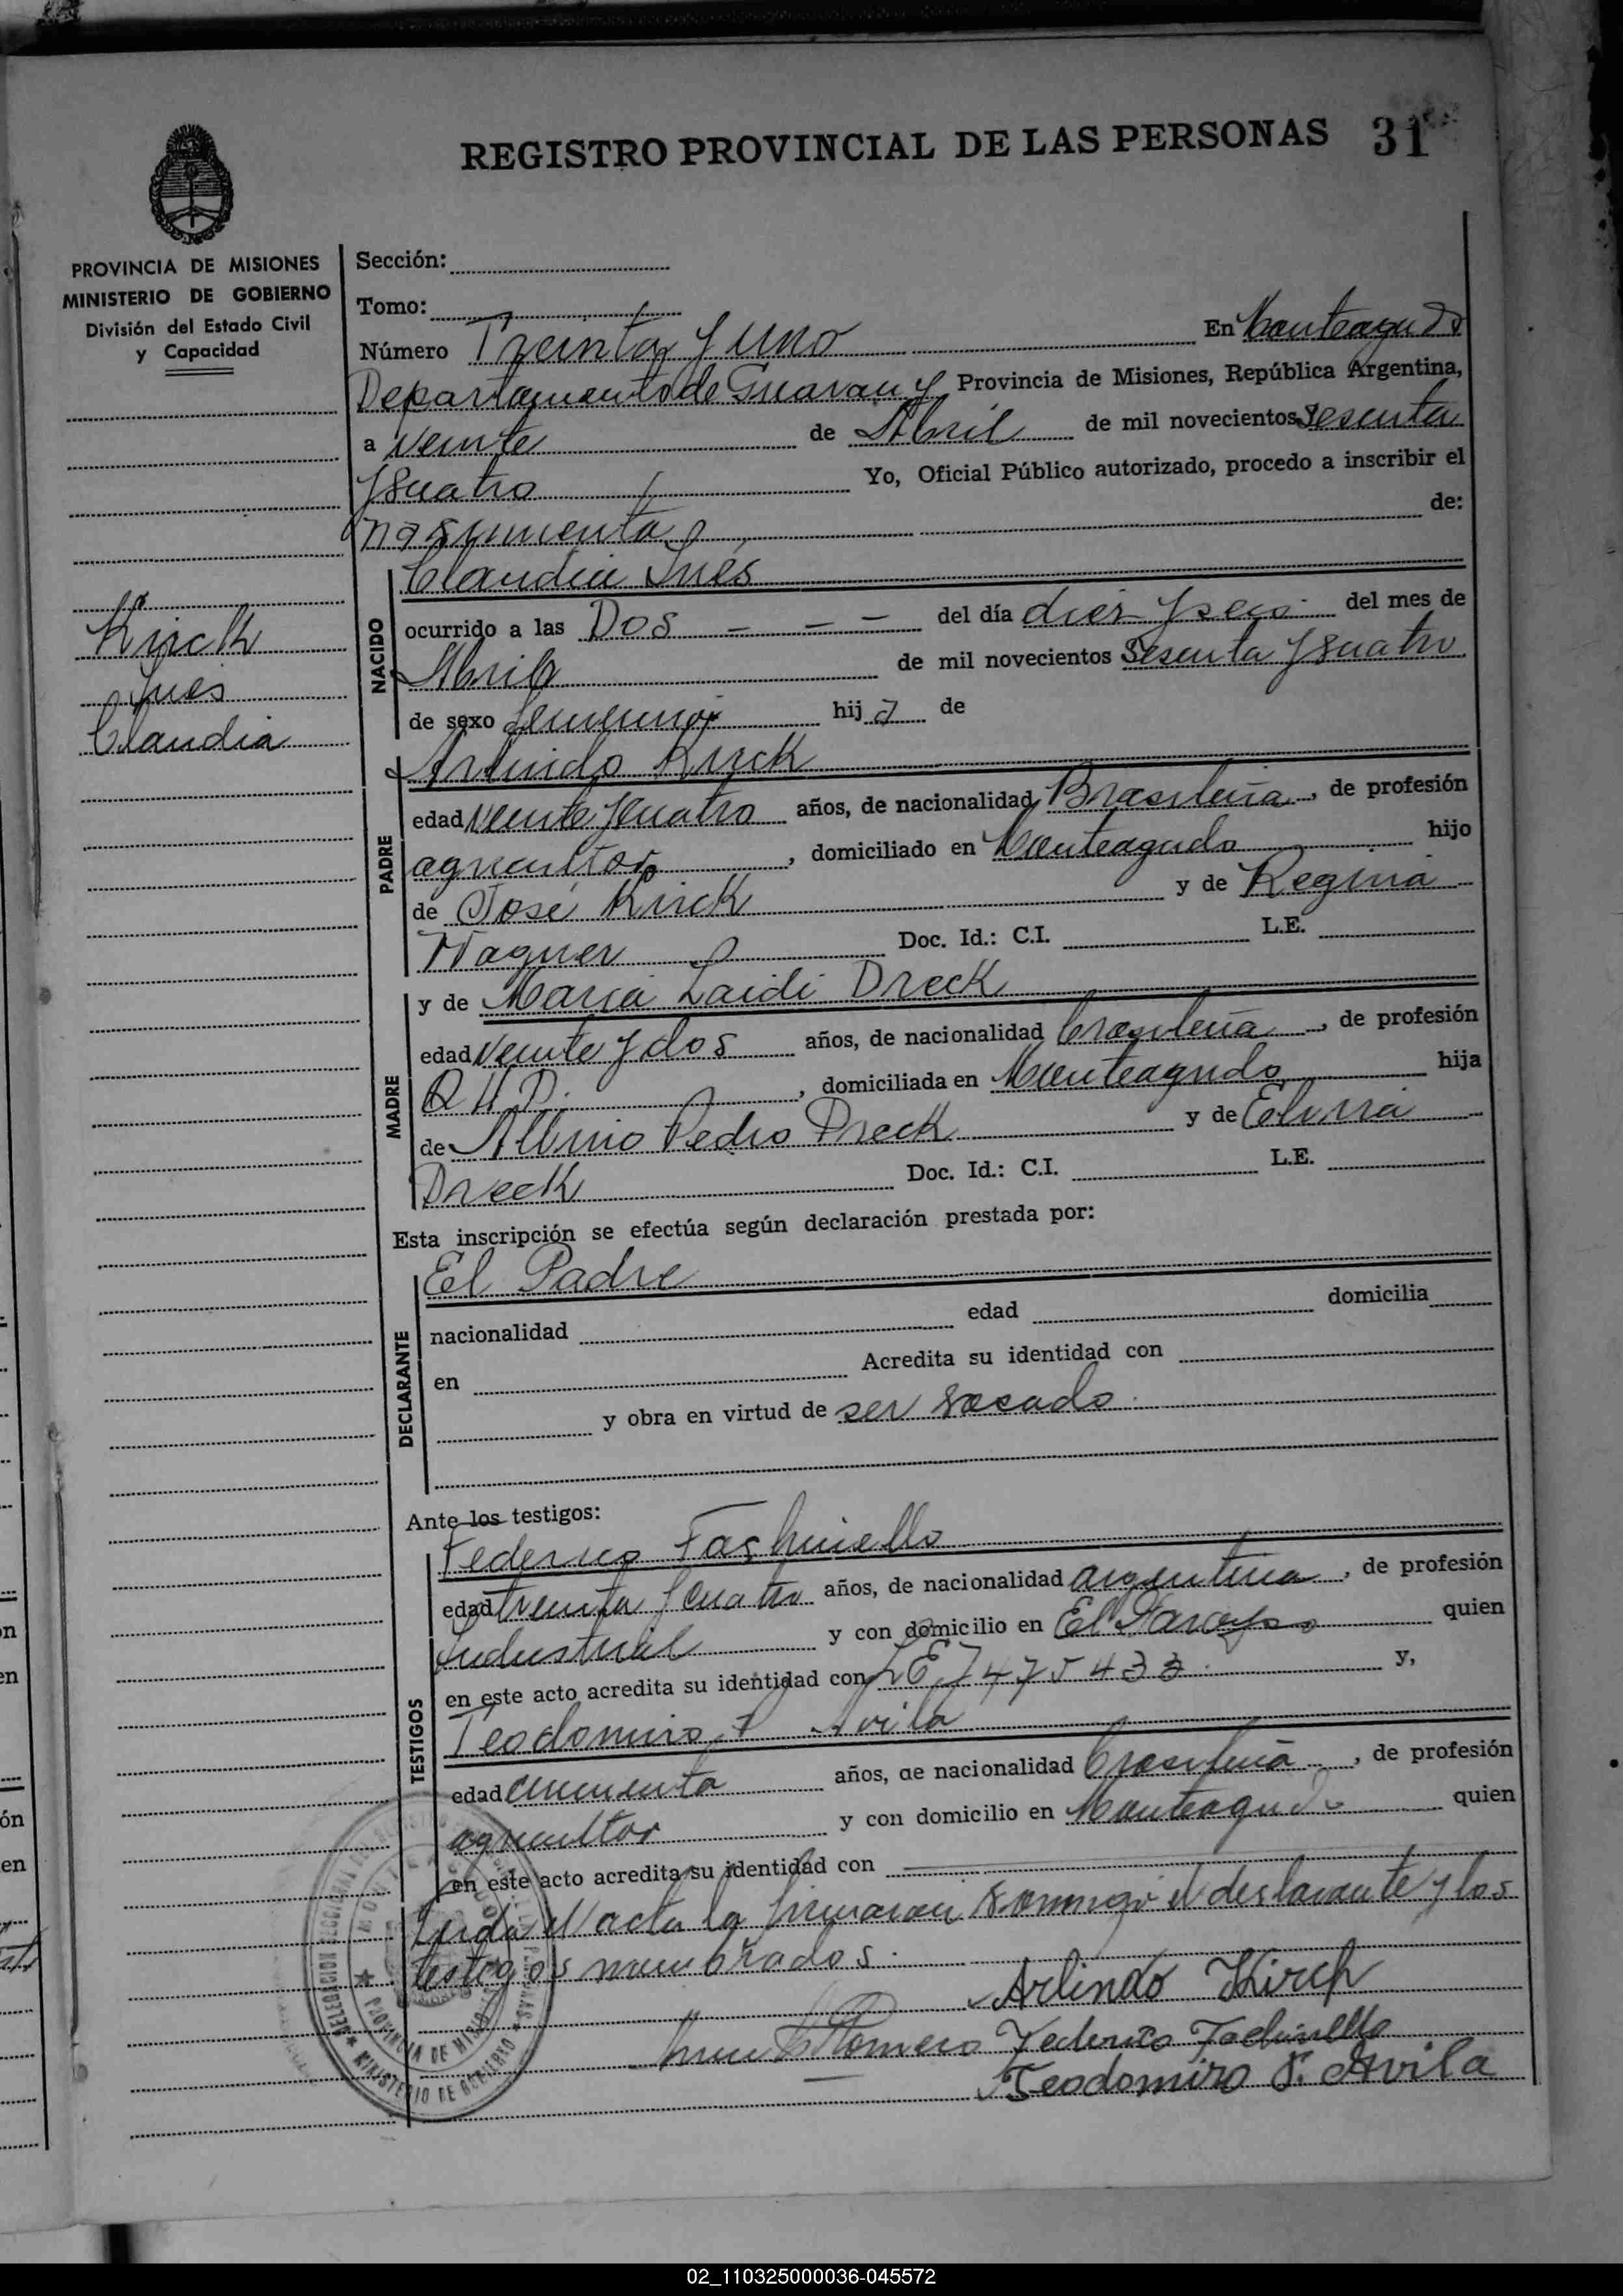 REGISTRO PROVINCIAL DE LAS PERSONAS 31
PROVINCIA DE MISIONES
MINISTERIO DE GOBIERNO
División del Estado Civil
y Capacidad
Kirck
Ines
Claudia
Sección:
Tomo:
Número Treinta y Uno En Monteagudo
Departamento de Guarany Provincia de Misiones, República Argentina,
a veinte de Abril de mil novecientos Sesenta
y cuatro Yo, Oficial Público autorizado, procedo a inscribir el
nacimiento de:
NACIDO
Claudia Inés
ocurrido a las Dos - - - del día diez y seis del mes de
Abril de mil novecientos Sesenta y cuatro
de sexo femenino hij a de
PADRE
Arlindo Kirck
edad veinte y cuatro años, de nacionalidad Brasileña, de profesión
agricultor, domiciliado en Monteagudo hijo
de José Kirck y de Regina
Wagner Doc. Id.: C.I. L.E.
MADRE
y de Maria Laidi Dreck
edad veinte y dos años, de nacionalidad brasileña, de profesión
Q. H. D., domiciliada en Monteagudo hija
de Albino Pedro Dreck y de Elvira
Dreck Doc. Id.: C.I. L.E.
Esta inscripción se efectúa según declaración prestada por:
DECLARANTE
El Padre
nacionalidad edad domicilia
en Acredita su identidad con
y obra en virtud de ser casado
Ante los testigos:
TESTIGOS
Federico Fachinello
edad treinta y cuatro años, de nacionalidad argentina, de profesión
Industrial y con domicilio en El quien
en este acto acredita su identidad con LE 7475433 y,
Teodomiro F Avila
edad cincuenta años, de nacionalidad brasileña, de profesión
agricultor y con domicilio en Monteagudo quien
en este acto acredita su identidad con
Leida el acta la firmaran conmigo el declarante y los
testigos nombrados.
Arlindo Kirch
Romero Federico Fachinello
Teodomiro F. Avila
DELEGACION
PROVINCIA DE MISIONES
MINISTERIO DE GOBIERNO
ón
en
02_110325000036-045572